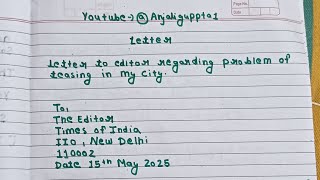 Youtube→ @Anjaliguppta1
Letter
Letter to editor regarding problem of
teasing in my city.
To,
The Editor
Times of India
IIO, New Delhi
110002
Date 15th May 2025